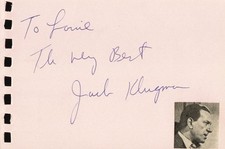 To Lorie
The Very Best
Jack Klugman